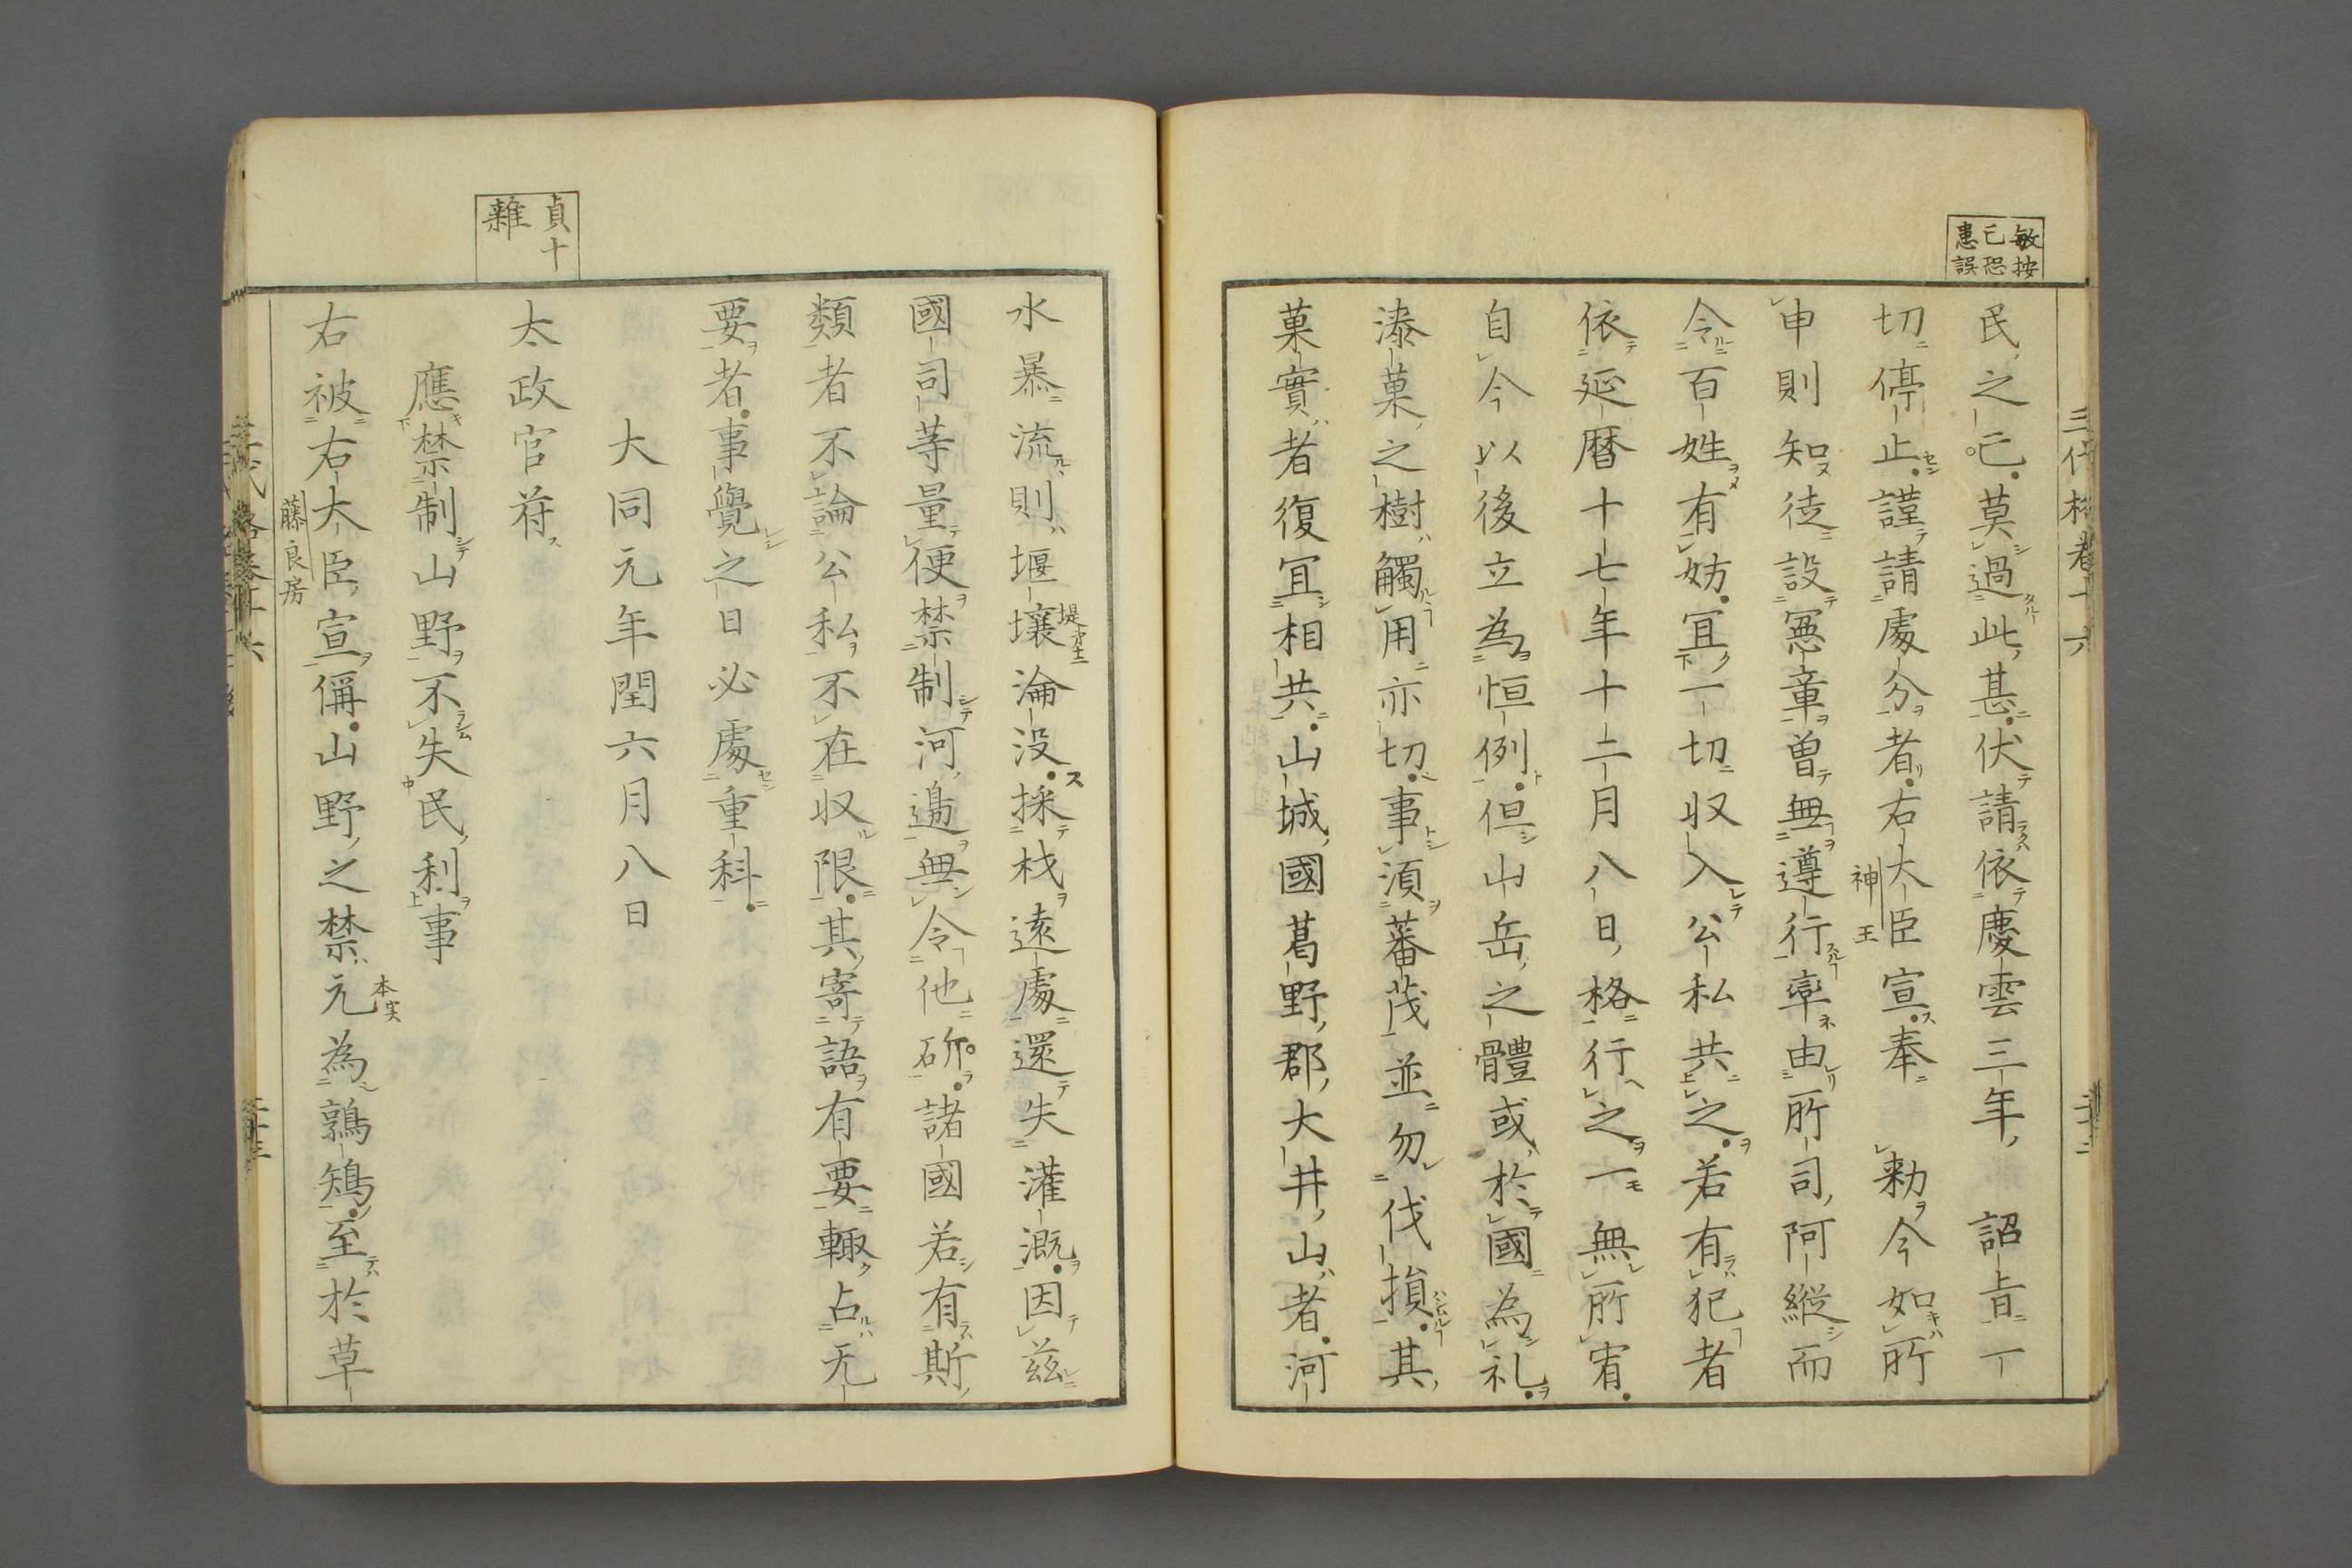 敏按
已恐
患誤
民之已莫過此甚伏請依慶雲三年詔旨一
切停止謹請處分者右大臣宣奉勅今如所
神王
申則知徒設憲章曽無遵行率由所司阿縱而
令百姓有妨冝一切収入公私共之若有犯者
依延暦十七年十二月八日格行之一無所宥
自今以後立為恒例但山岳之體或於國為礼
漆菓之樹觸用亦切事湏蕃茂並勿伐損其
菓實者復冝相共山城國葛野郡大井山者河
水暴流則堰壌淪没採材遠處還失灌漑因兹
堤
國司等量便禁制河邉無令他斫諸國若有斯
類者不論公私不在収限其寄語有要輙占无
要者事覺之日必處重科
大同元年閏六月八日
貞十
雜
太政官符
應禁制山野不失民利事
右被右大臣宣偁山野之禁元為鶉鴙至於草
藤良房
本宲